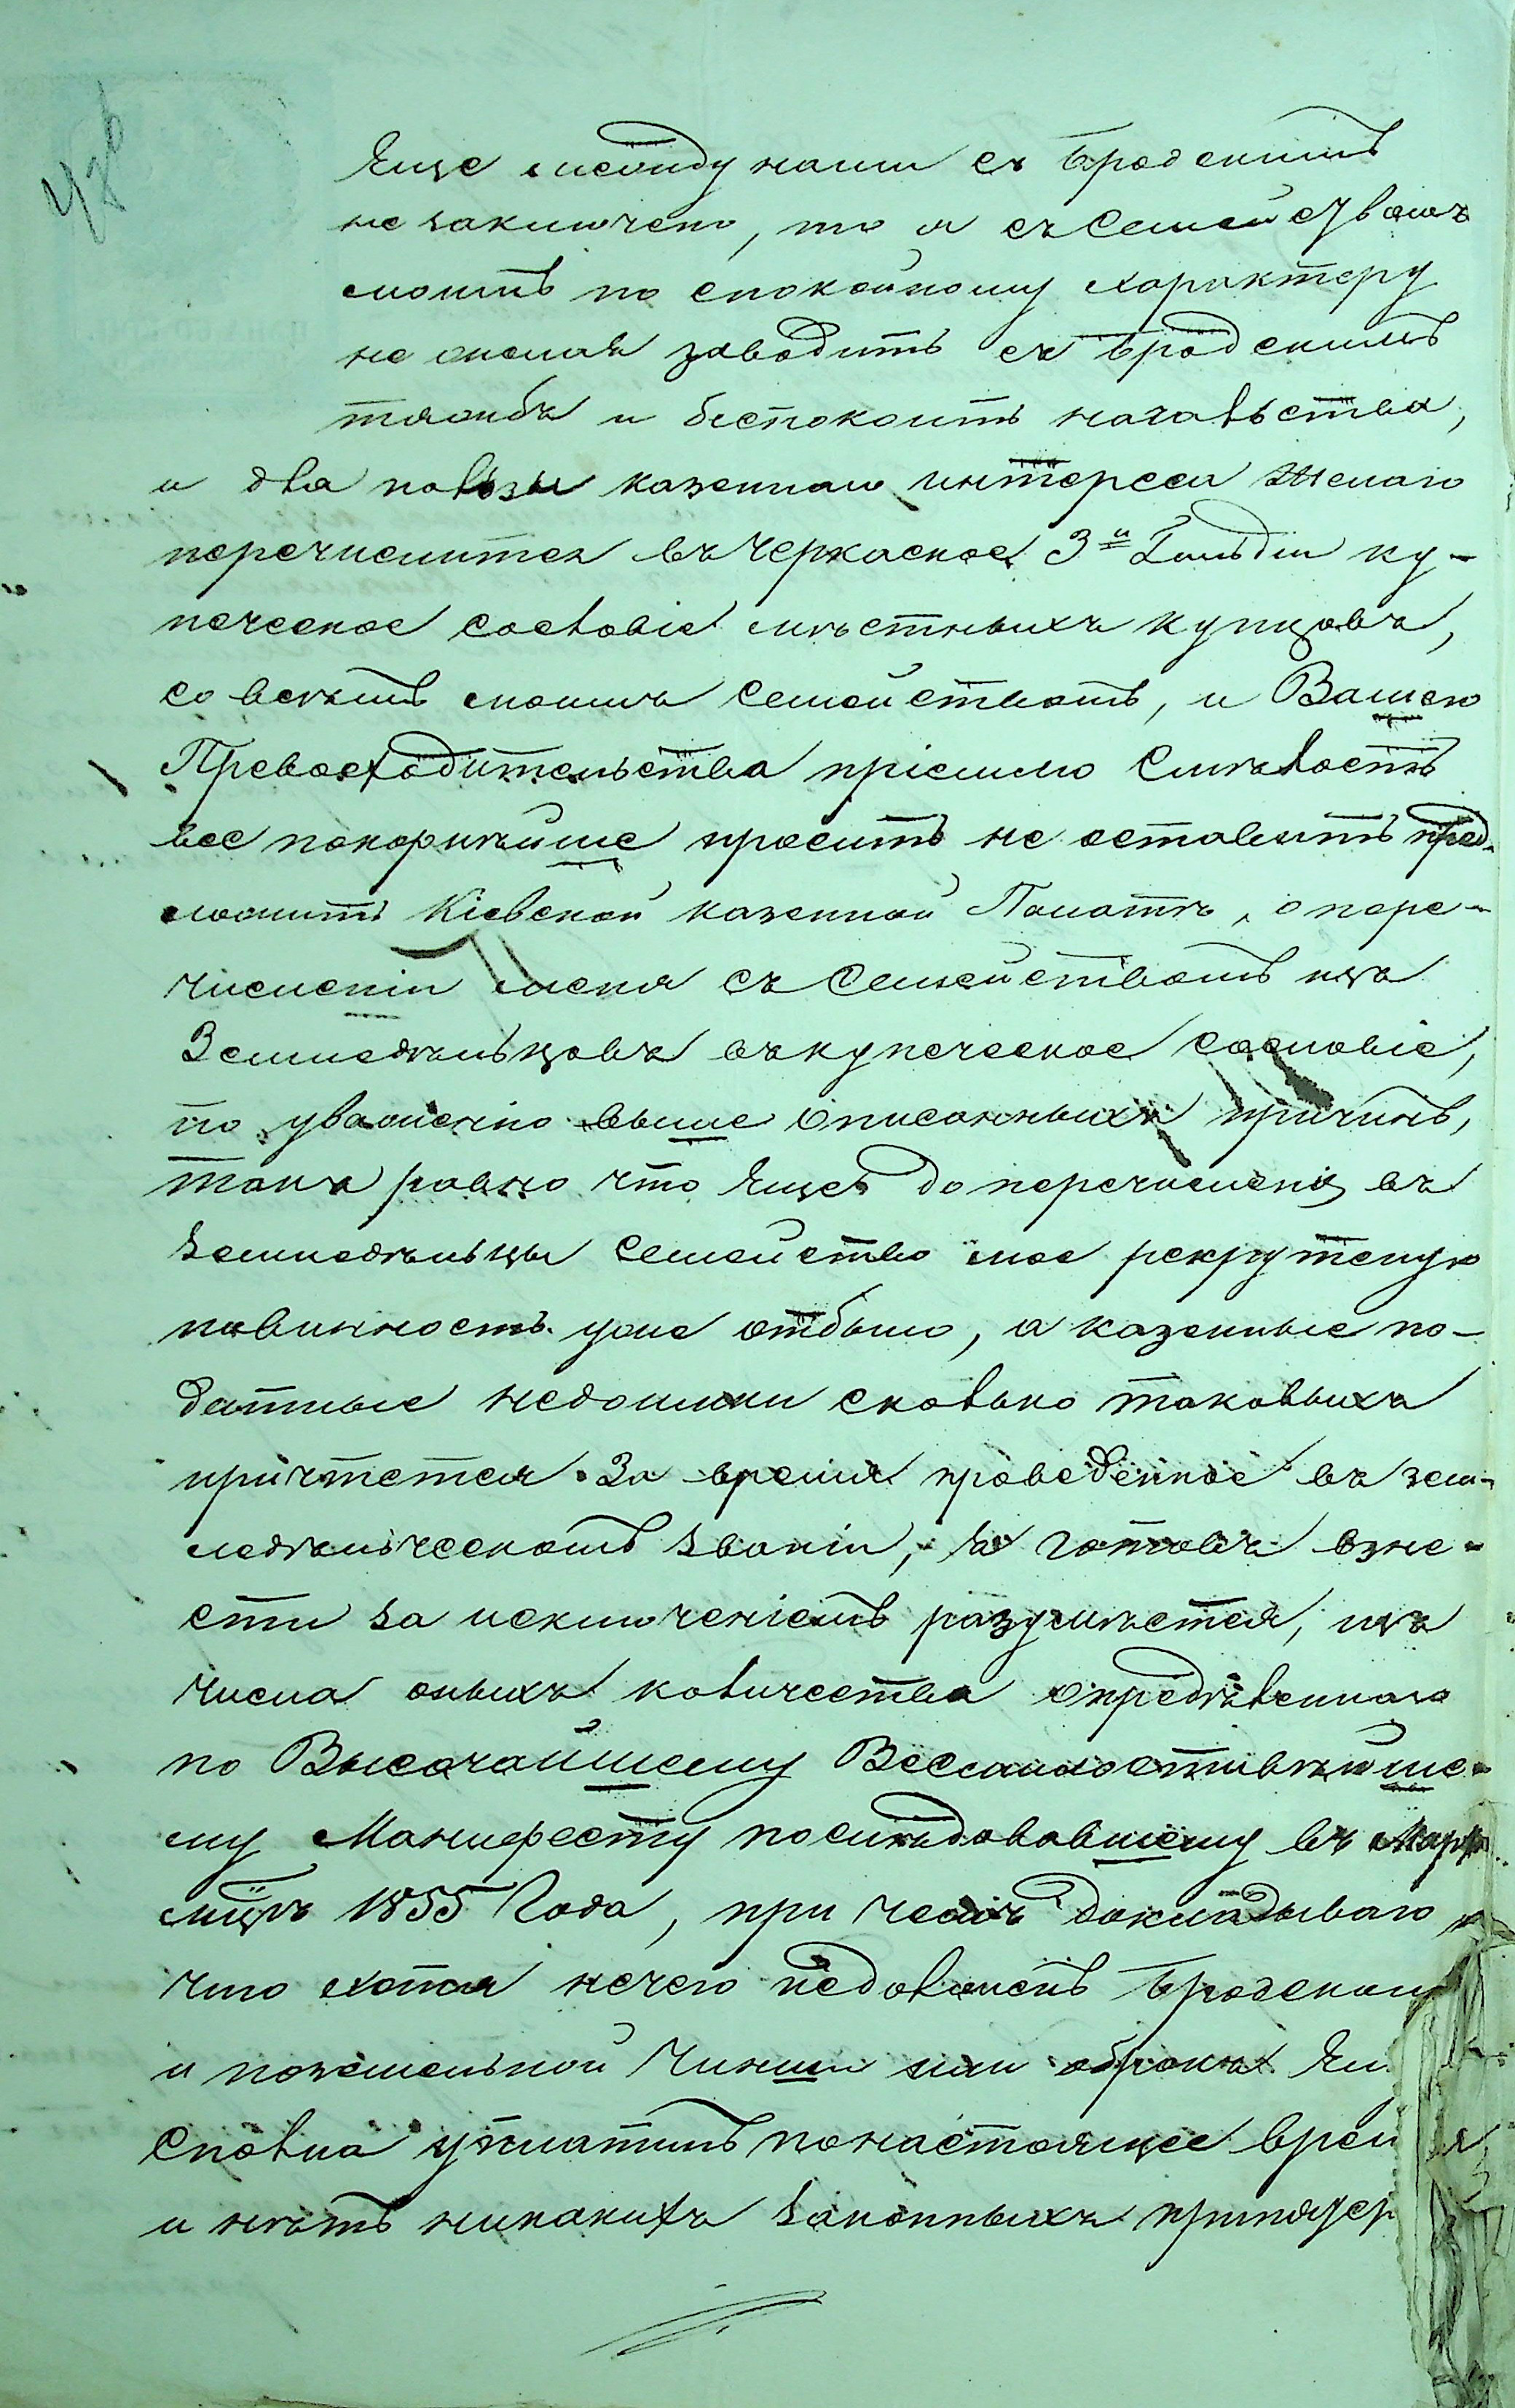 Еще между нами съ Бродскимъ
не заключено, то я съ семействомъ
моимъ по спокойному характеру
не желая заводить съ Бродскимъ
тяжбъ и беспокоить начальства,
и для пользы казеннаго интереса желаю
перечислится въ Черкаское 3й Гильдіи ку-
печеское сословіе мѣстныхъ купцовъ,
со всемъ моимъ семействомъ, и Вашего
Превосходительства пріемлю смѣлость
все покорнѣйше просить не оставить пред-
ложить Кіевской казенной Палатѣ, о пере-
численіи меня съ семействомъ изъ
Земледѣльцовъ въ купеческое сословіе,
по уваженію выше описанныхъ причинъ,
такъ равно что Еще до перечисленія въ
земледѣльцы семейство мое рекрутскую
повинность уже отбыло, а казенные по-
датные недоимки сколько таковыхъ
причтется За время проведенное въ зем-
ледѣльческомъ званіи, я готовъ взне-
сти за исключеніемъ разумѣется, изъ
числа оныхъ количества опредѣленнаго
по Высочайшему Всемилостивѣйше-
му Манифесту послѣдовавшему въ Мартѣ
мцѣ 1855 Года, при чемъ докладываю
что хотя нечего недолженъ Бродском
и поземельной Чиншъ или оброкъ Ем
Сполна уплатилъ по настоящее время
и нѣтъ никакихъ законныхъ